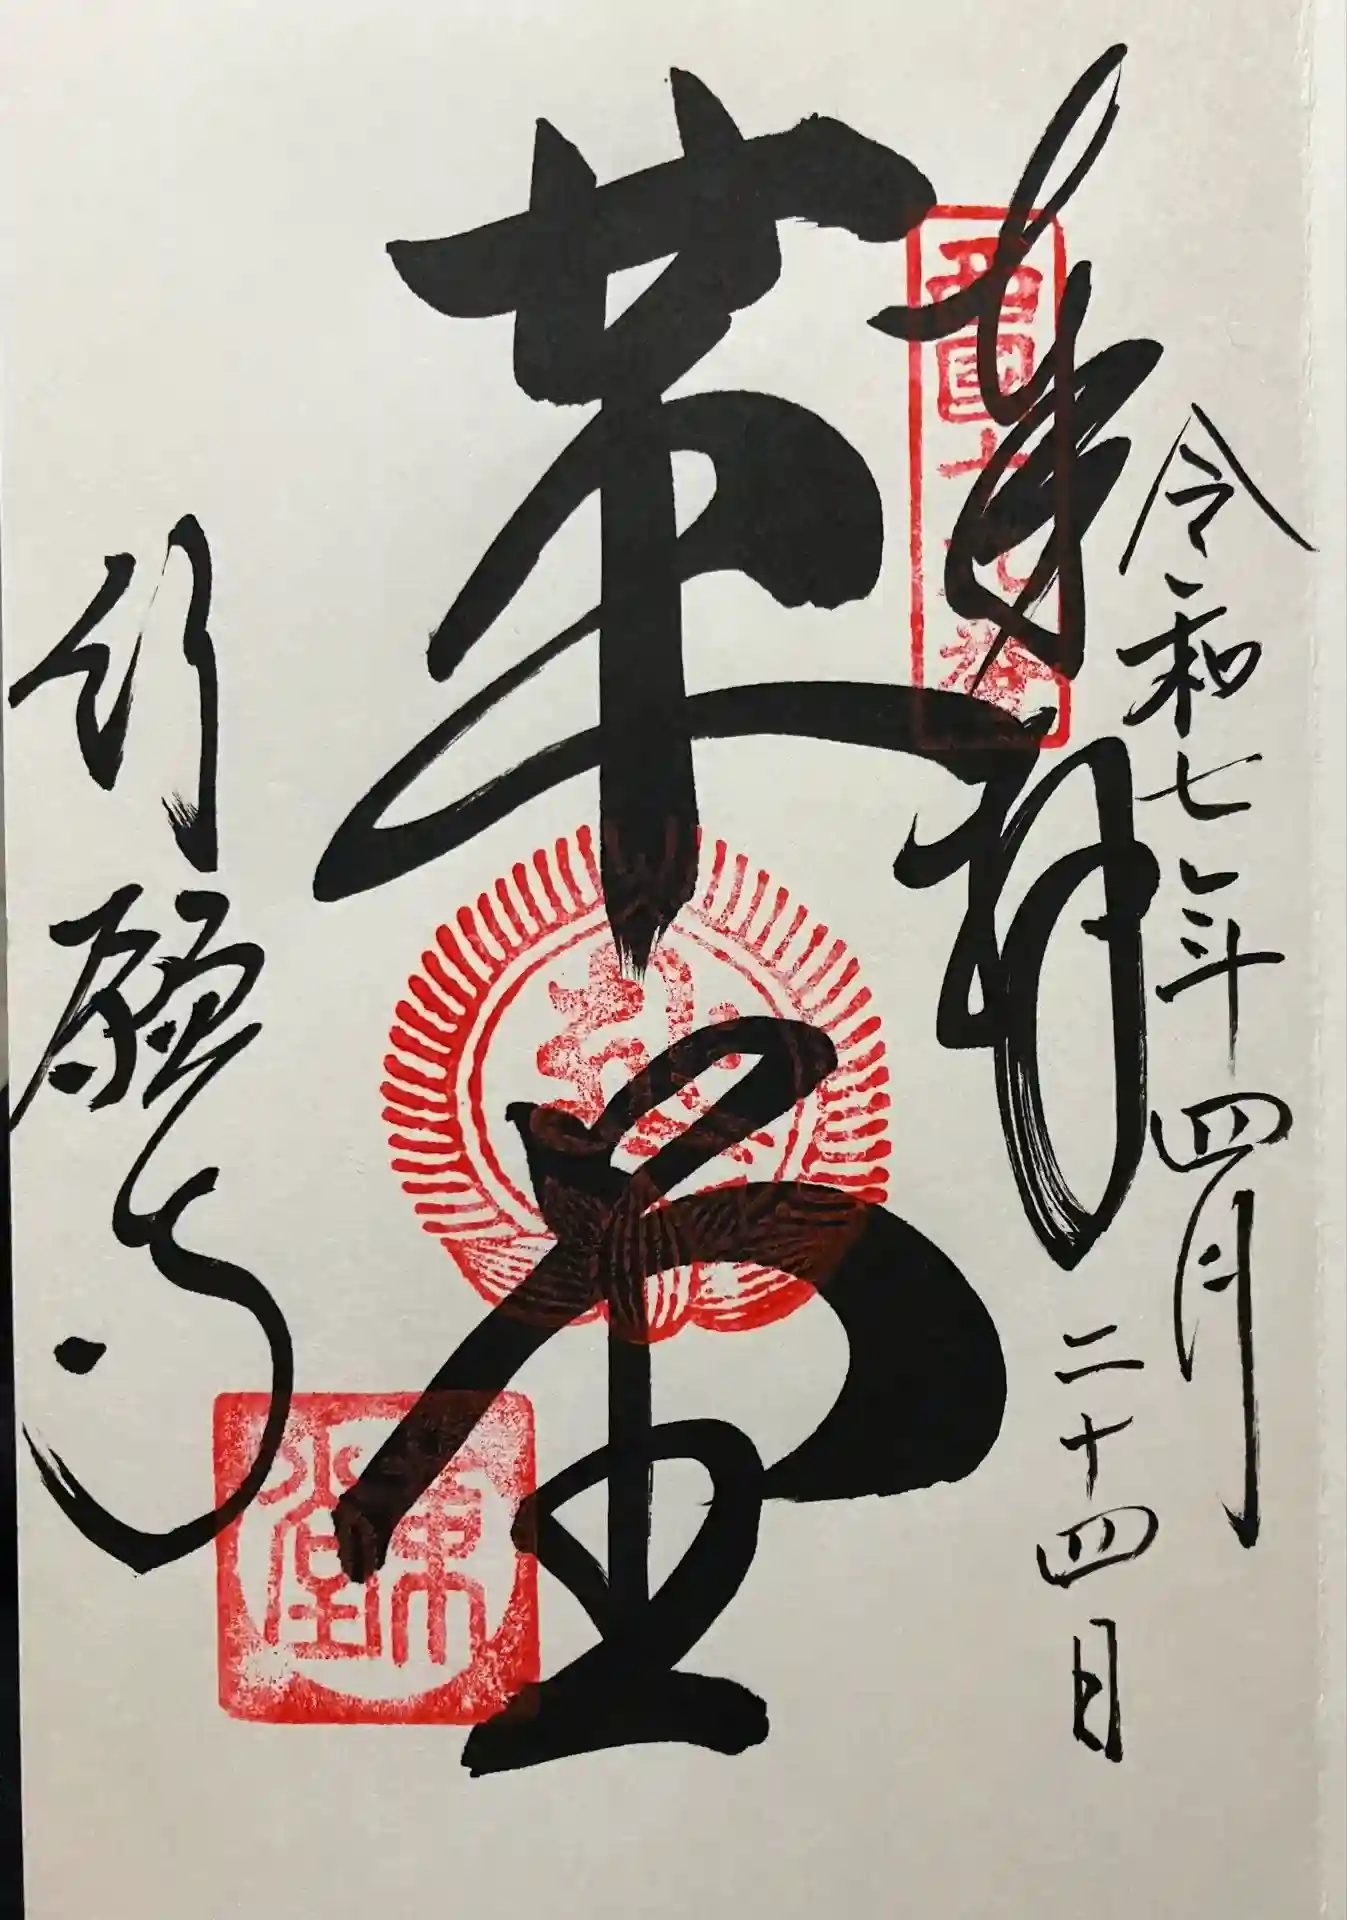 令和七年四月
二十四日
奉拝
西國十九番
革堂
革堂
行願寺